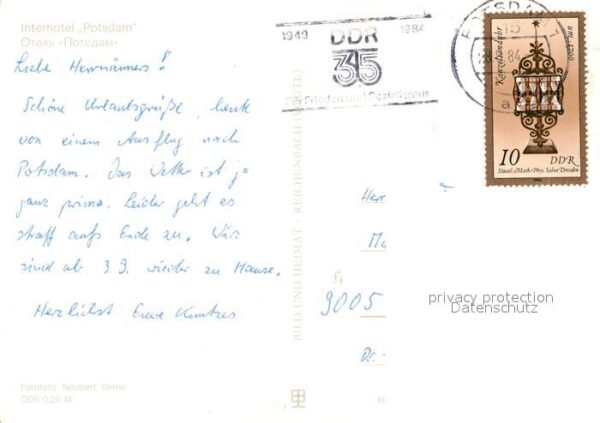 Interhotel „Potsdam"
Отель «Потсдам»
Liebe Herrmänners!
Schöne Urlaubsgrüße, heute
von einem Ausflug nach
Potsdam. Das Wetter ist ja
ganz prima. Leider geht es
straff aufs Ende zu. Wir
sind ab 3 9. wieder zu Hause.
Herzlichst Eure
Farbfoto: Naubert, Berlin
DDR 0,20 M
BILD UND HEIMAT · REICHENBACH
1949 1984
DDR
35
Frieden und Sozialismus
POTSDAM 1
15
84
a
Kanzelsanduhr
um 1700
10 DDR
Staatl. Math.-Phys. Salon Dresden
Herr
9005
privacy protection
Datenschutz